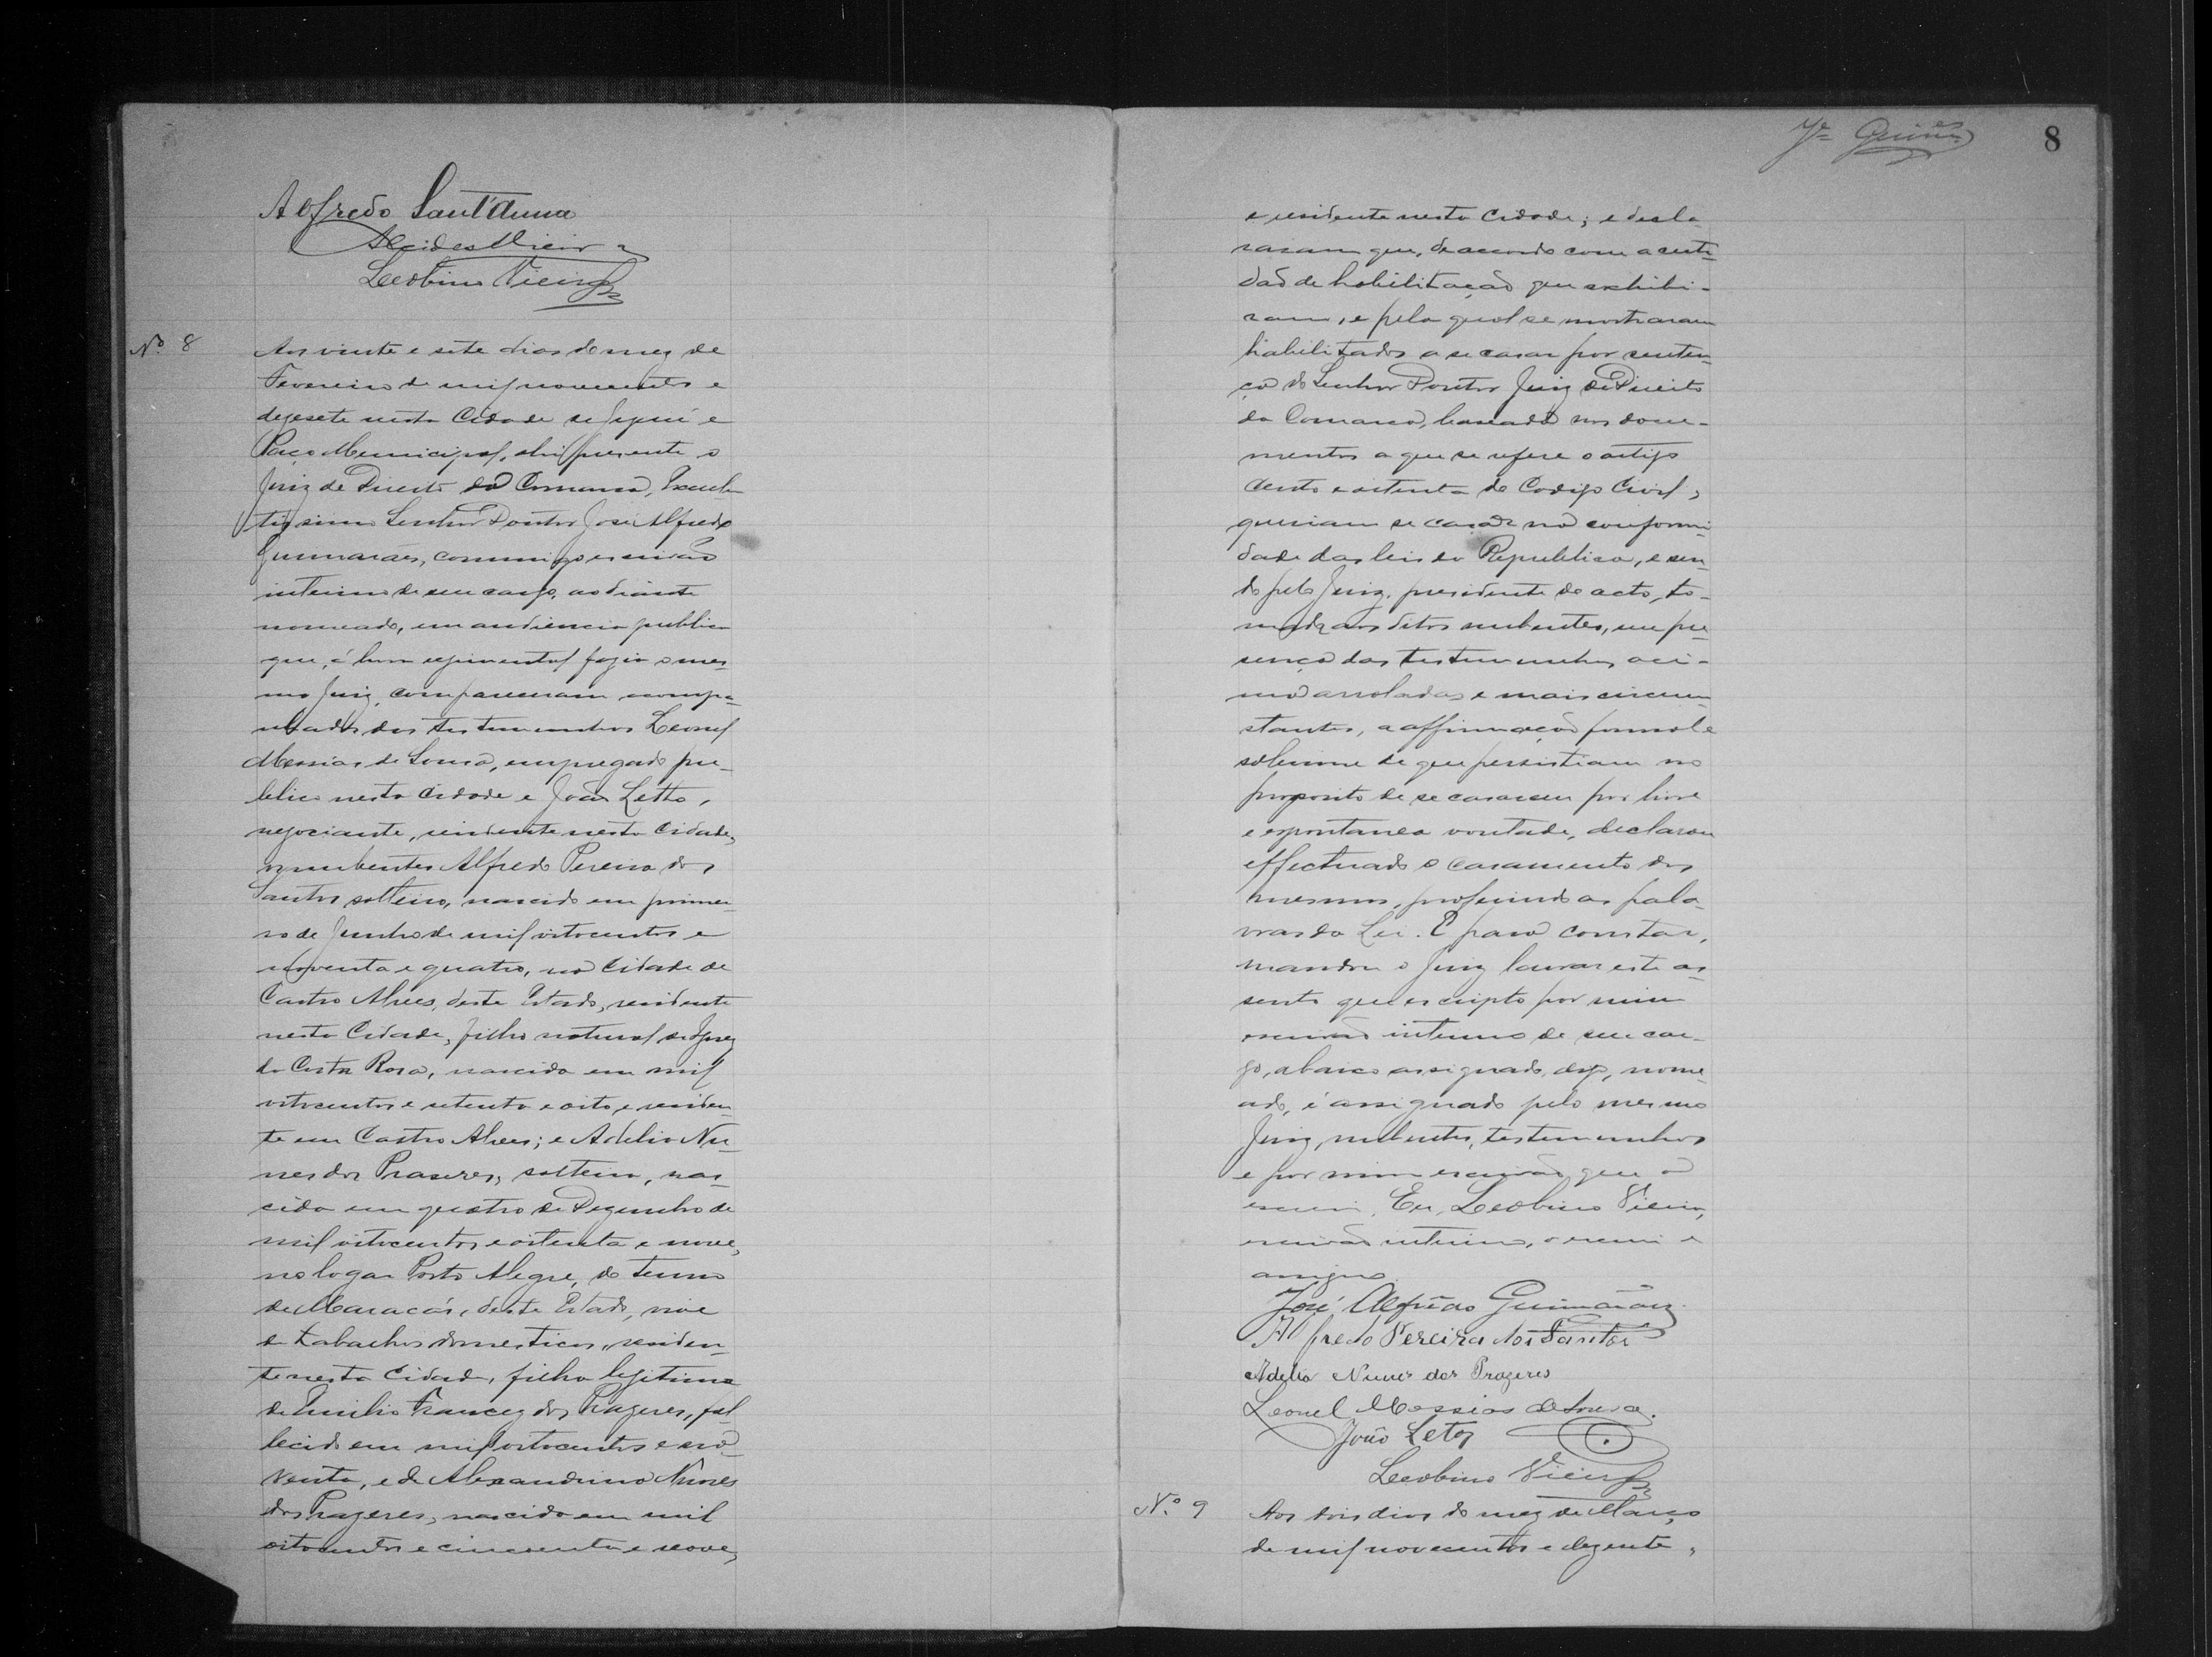 Alfredo Sant'Anna
Alcides Vieira
Leobino Vieira
Nº 8
Aos vinte e sete dias do mez de
Fevereiro de mil novecentos e
dezesete nesta Cidade de Jequié e
Paço Municipal, ahi presente o
Juiz de Direito da Comarca, Excellen
tissimo Senhor Doutor José Alfredo
Guimarães, commigo escrivão
interino de seu cargo, ao diante
nomeado, em audiencia publica
que, á hora regimental fazia o mes-
mo Juiz, compareceram acompa-
nhados das testemunhas Leonel
Messias de Sousa, empregado pu-
blico nesta Cidade e João Letto,
negociante, residente nesta Cidade,
os nubentes Alfredo Pereira dos
Santos solteiro, nascido em primei-
ro de Junho de mil oitocentos e
noventa e quatro, na Cidade de
Castro Alves, deste Estado, residente
nesta Cidade, filho natural de Ignez
da Costa Rosa, nascida em mil
oitocentos e setenta e oito, e residen-
te em Castro Alves; e Adelia Nu-
nes dos Prazeres, solteira, nas-
cida em quatro de Dezembro de
mil oitocentos e oitenta e nove,
no logar Porto Alegre, do termo
de Maracás, deste Estado, vive
de trabalhos domesticos, residen-
te nesta Cidade, filha legitima
de Emilio Francez dos Prazeres, fal-
lecido em mil oitocentos e no-
venta, e de Alexandrina Nunes
dos Prazeres, nascida em mil
oitocentos e cincoenta e nove,
8
e residente nesta Cidade; e decla-
raram que, de accordo com a certi-
dão de habilitação que exhibi-
ram, e pela qual se mostraram
habilitados a se casar por senten-
ça do Senhor Doutor Juiz de Direito
da Comarca, baseada nos docu-
mentos a que se refere o artigo
cento e oitenta do Codigo Civil,
queriam se casar na conformi-
dade das leis da Republica, e sen-
do pelo Juiz, presidente do acto, to-
mada aos ditos nubentes, em pre-
sença das testemunhas aci-
ma arroladas e mais circum-
stantes, a affirmação formal e
solemne de que persistiam no
proposito de se casarem por livre
e espontanea vontade, declarou
effectuado o casamento dos
mesmos, proferindo as pala-
vras da Lei. E para constar,
mandou o Juiz lavrar este as-
sento que escripto por mim
escrivão interino de seu car-
go, abaixo assignado, digo, nome-
ado, é assignado pelo mesmo
Juiz, nubentes, testemunhas
e por mim escrivão que o
escrevi. Eu, Leobino Vieira,
escrivão interino, o escrevi e
assigno
José Alfredo Guimarães
Alfredo Pereira dos Santos
Adelia Nunes dos Prazeres
Leonel Messias de Sousa.
João Leto
Leobino Vieira
Nº 9
Aos dois dias do mez de Março
de mil novecentos e dezesete,